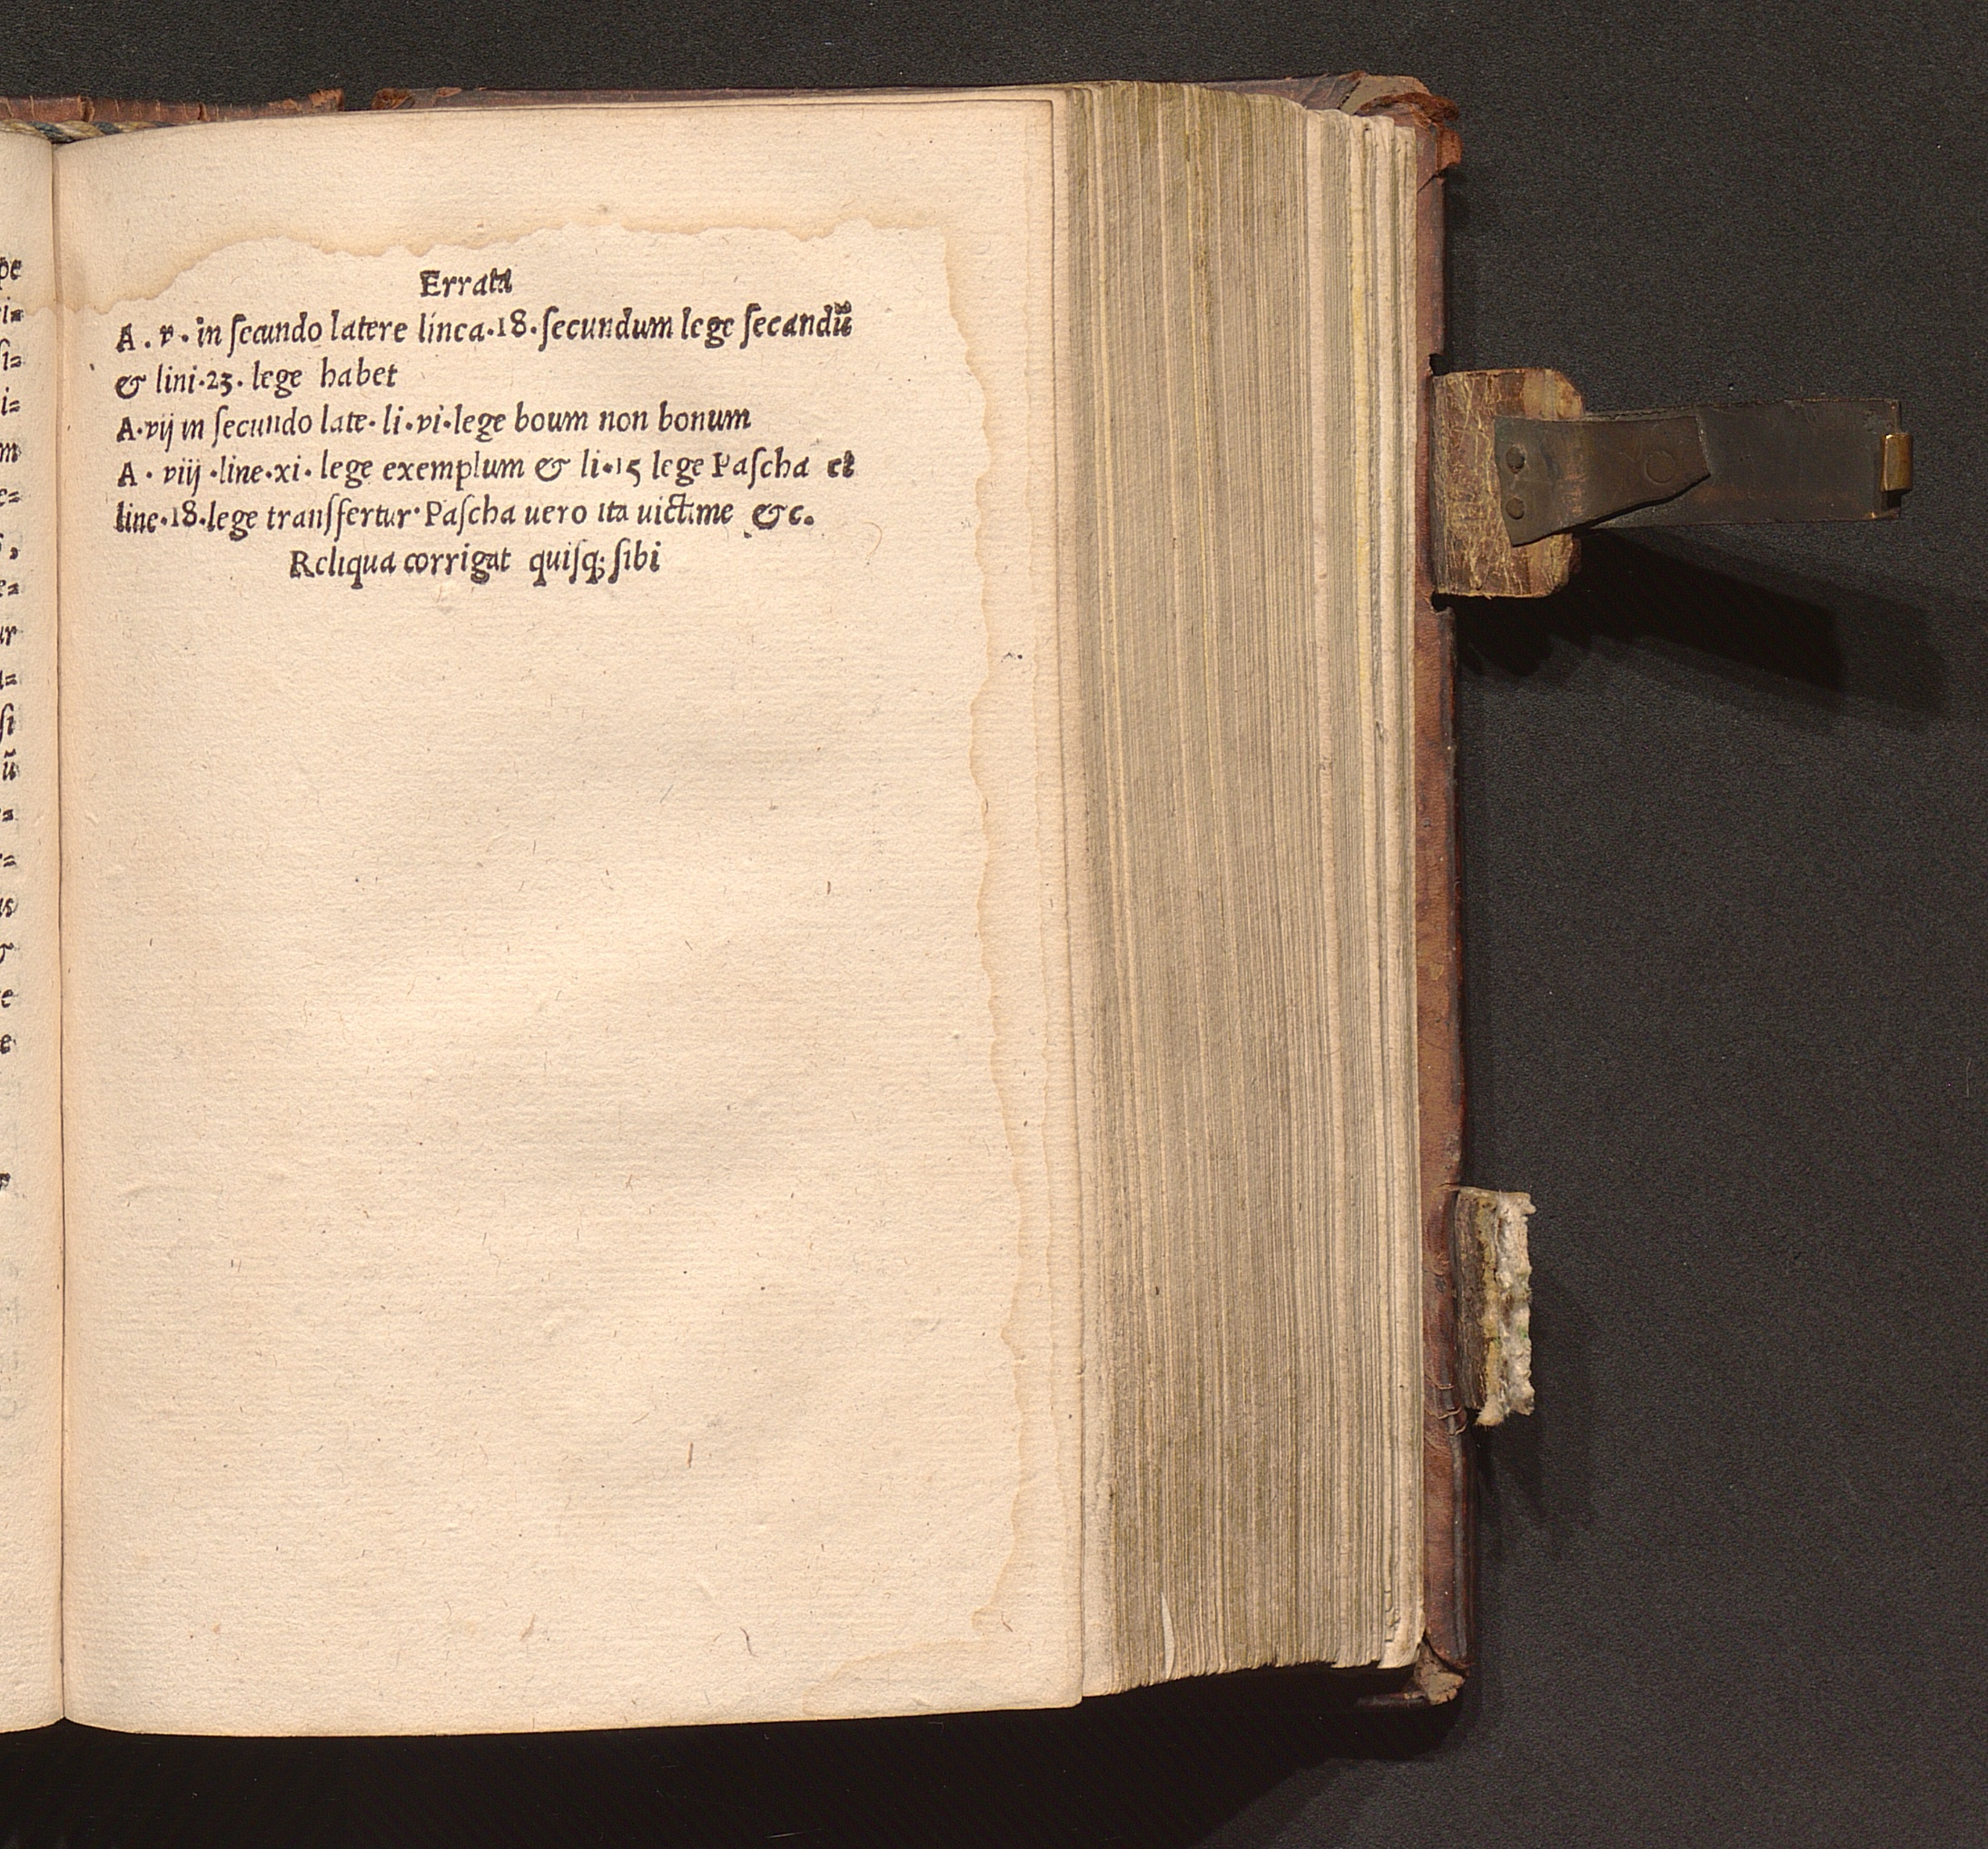 Errata
A . v . in ſecundo latere linea·18·ſecundum lege ſecandũ
& lini·23· lege habet
A·vij in ſecundo late· li·vi·lege boum non bonum
A · viij ·line·xi· lege exemplum & li·15 lege Paſcha et
line·18·lege tranſfertur· Paſcha uero ita uictime &c.
Reliqua corrigat quiſq; ſibi